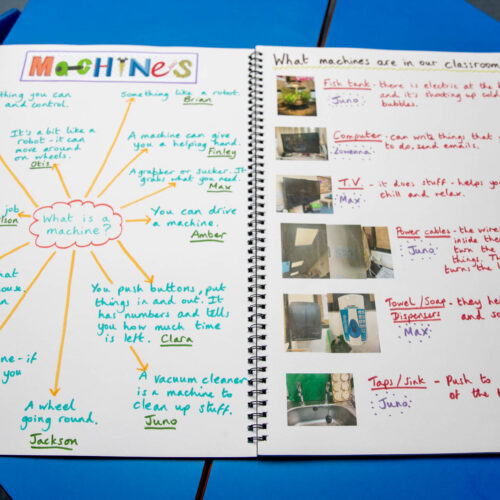 MACHINES
thing you can
and control.
Something like a robot.
Brian
It's a bit like a
robot - it can
move around
on wheels.
Otis
A machine can give
you a helping hand.
Finley
A grabber or sucker. It
grabs what you need.
Max
job
What is a
machine?
You can drive
a machine.
Amber
You push buttons, put
things in and out. It
has numbers and tells
you how much time
is left.
Clara
if
you
A vacuum cleaner
is a machine to
clean up stuff.
Juno
A wheel
going round.
Jackson
What machines are in our classroom
Fish tank - there is electric at the b
and it's shooting up cold
bubbles.
Juno
Computer - can write things that
to do, send emails.
T.V. - it does stuff - helps yo
chill and relax.
Max
Power cables - the wire
inside the
turn the
things. Th
turns the
Juno
Towel/Soap - they hel
Dispensers and so
Max
Taps/sink - Push to
of the t
Juno